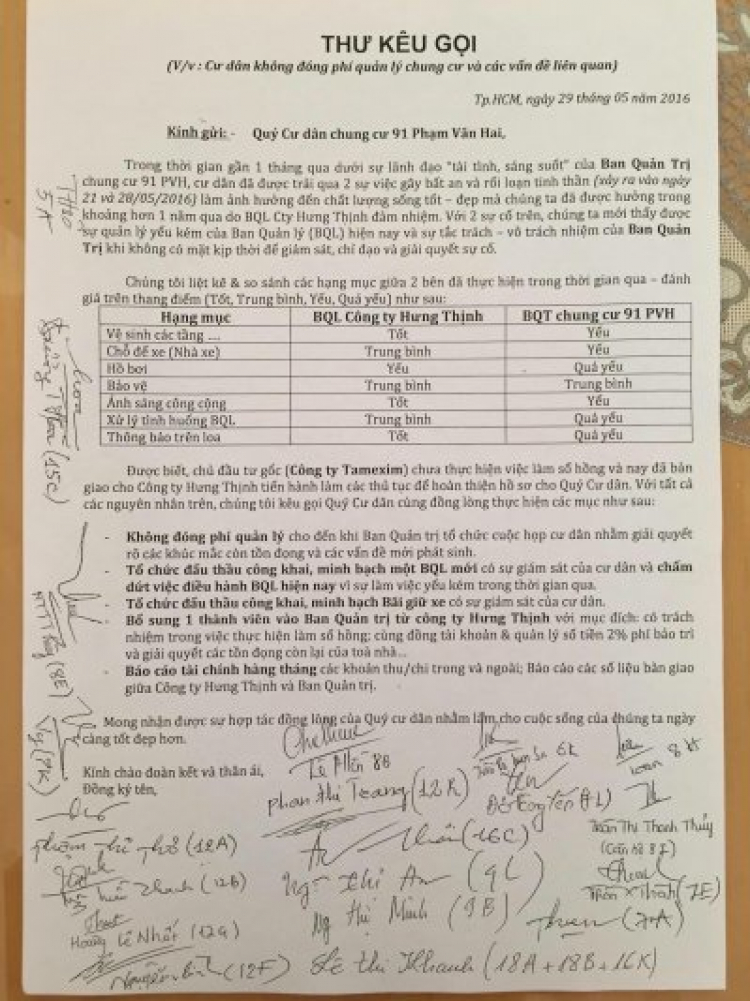 THƯ KÊU GỌI
(V/v : Cư dân không đóng phí quản lý chung cư và các vấn đề liên quan)
Tp.HCM, ngày 29 tháng 05 năm 2016
Kính gửi: - Quý Cư dân chung cư 91 Phạm Văn Hai,
Trong thời gian gần 1 tháng qua dưới sự lãnh đạo "tài tình, sáng suốt" của Ban Quản Trị
chung cư 91 PVH, cư dân đã được trải qua 2 sự việc gây bất an và rối loạn tinh thần (xảy ra vào ngày
21 và 28/05/2016) làm ảnh hưởng đến chất lượng sống tốt – đẹp mà chúng ta đã được hưởng trong
khoảng hơn 1 năm qua do BQL Cty Hưng Thịnh đảm nhiệm. Với 2 sự cố trên, chúng ta mới thấy được
sự quản lý yếu kém của Ban Quản lý (BQL) hiện nay và sự tắc trách – vô trách nhiệm của Ban Quản
Trị khi không có mặt kịp thời để giám sát, chỉ đạo và giải quyết sự cố.
Chúng tôi liệt kê & so sánh các hạng mục giữa 2 bên đã thực hiện trong thời gian qua – đánh
giá trên thang điểm (Tốt, Trung bình, Yếu, Quá yếu) như sau:
Hạng mục BQL Công ty Hưng Thịnh BQT chung cư 91 PVH
Vệ sinh các tầng .... Tốt Yếu
Chỗ để xe (Nhà xe) Trung bình Yếu
Hồ bơi Yếu Quá yếu
Bảo vệ Trung bình Trung bình
Ánh sáng công cộng Tốt Yếu
Xử lý tình huống BQL Trung bình Quá yếu
Thông báo trên loa Tốt Quá yếu
Được biết, chủ đầu tư gốc (Công ty Tamexim) chưa thực hiện việc làm sổ hồng và nay đã bàn
giao cho Công ty Hưng Thịnh tiến hành làm các thủ tục để hoàn thiện hồ sơ cho Quý Cư dân. Với tất cả
các nguyên nhân trên, chúng tôi kêu gọi Quý Cư dân cùng đồng lòng thực hiện các mục như sau:
- Không đóng phí quản lý cho đến khi Ban Quản trị tổ chức cuộc họp cư dân nhằm giải quyết
rõ các khúc mắc còn tồn đọng và các vấn đề mới phát sinh.
- Tổ chức đấu thầu công khai, minh bạch một BQL mới có sự giám sát của cư dân và chấm
dứt việc điều hành BQL hiện nay vì sự làm việc yếu kém trong thời gian qua.
- Tổ chức đấu thầu công khai, minh bạch Bãi giữ xe có sự giám sát của cư dân.
- Bổ sung 1 thành viên vào Ban Quản trị từ công ty Hưng Thịnh với mục đích: có trách
nhiệm trong việc thực hiện làm sổ hồng; cùng đồng tài khoản & quản lý số tiền 2% phí bảo trì
và giải quyết các tồn đọng còn lại của toà nhà...
- Báo cáo tài chính hàng tháng các khoản thu/chi trong và ngoài; Báo cáo các số liệu bàn giao
giữa Công ty Hưng Thịnh và Ban Quản trị.
Mong nhận được sự hợp tác đồng lòng của Quý cư dân nhằm làm cho cuộc sống của chúng ta ngày
càng tốt đẹp hơn.
Kính chào đoàn kết và thân ái,
Đồng ký tên,
Thảo
5A
(15C)
(8E)
Vy (9K)
Lê Mến 8B
6K
8H
Phan thị Trang (12K)
Phạm Thị Thơ (12A)
(16C)
Trần Thị Thanh Thủy
(Căn hộ 8J)
Thanh (12B)
Ngô thị An (9L)
(7E)
Hoàng Lê Nhất (12G)
Ng Thị Minh (9B)
(7A)
(12F)
Lê thị Khanh (18A + 18B + 16K)